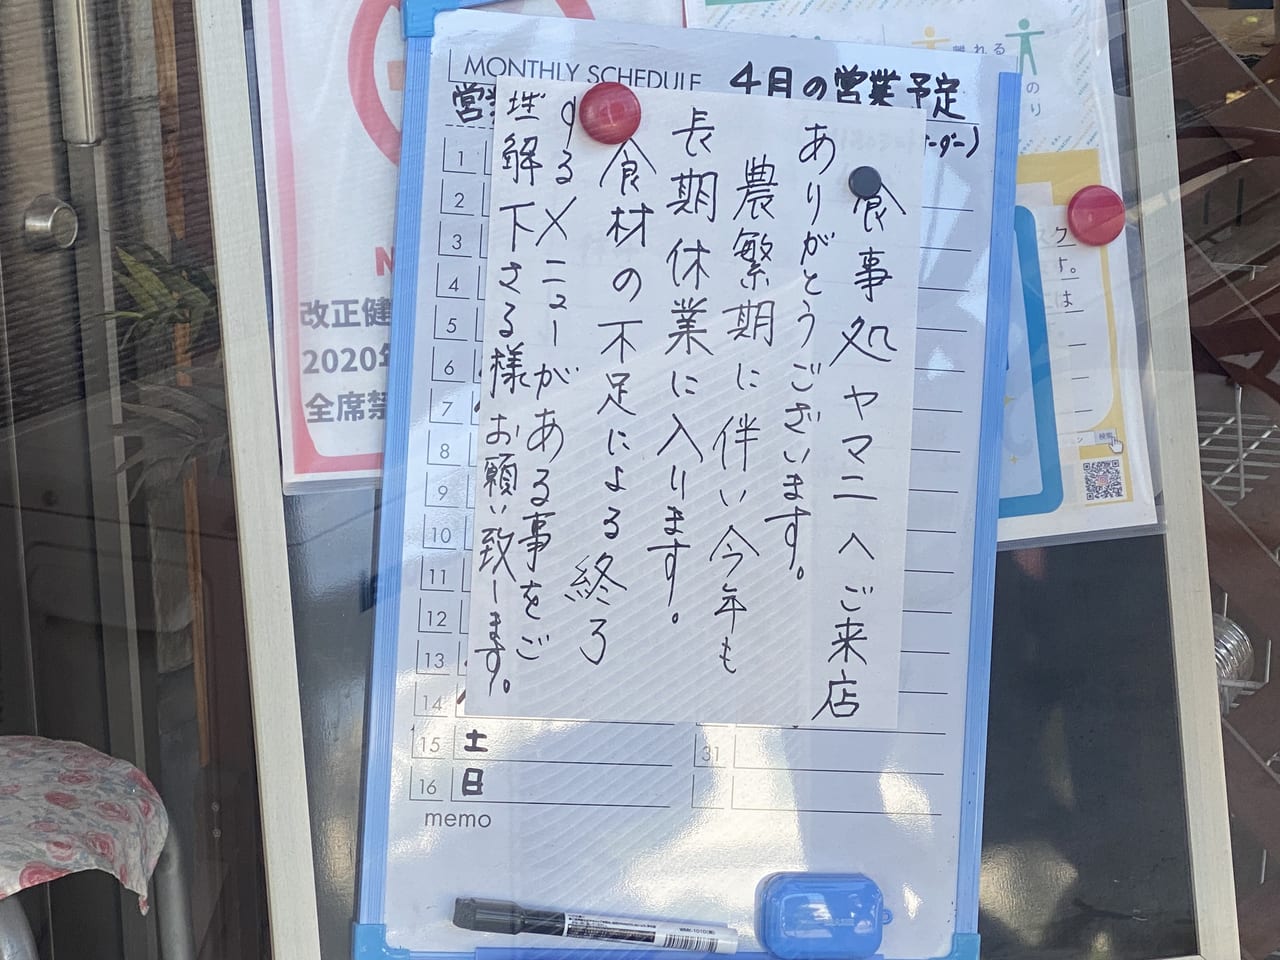 MONTHLY SCHEDULE
4月の営業予定
食事処ヤマニへご来店
ありがとうございます。
農繁期に伴い今年も
長期休業に入ります。
食材の不足による終了
するメニューがある事をご
理解下さる様お願い致します。
1
2
3
4
5
6
7
8
9
10
11
12
13
14
15 土
16 日
31
memo
改正健
2020年
全席禁
離れる
のり
検索